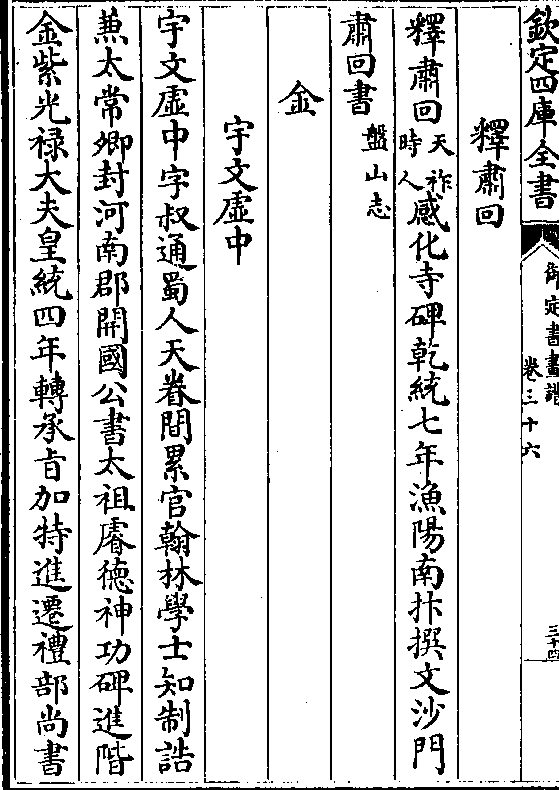 欽定四庫全書
御定書畫譜
卷三十六
三十四
釋肅回
釋肅回天祚時人感化寺碑乾統七年漁陽南抃撰文沙門
肅回書盤山志
金
宇文虛中
宇文虛中字叔通蜀人天眷間累官翰林學士知制誥
兼太常卿封河南郡開國公書太祖睿德神功碑進階
金紫光祿大夫皇統四年轉承旨加特進遷禮部尚書